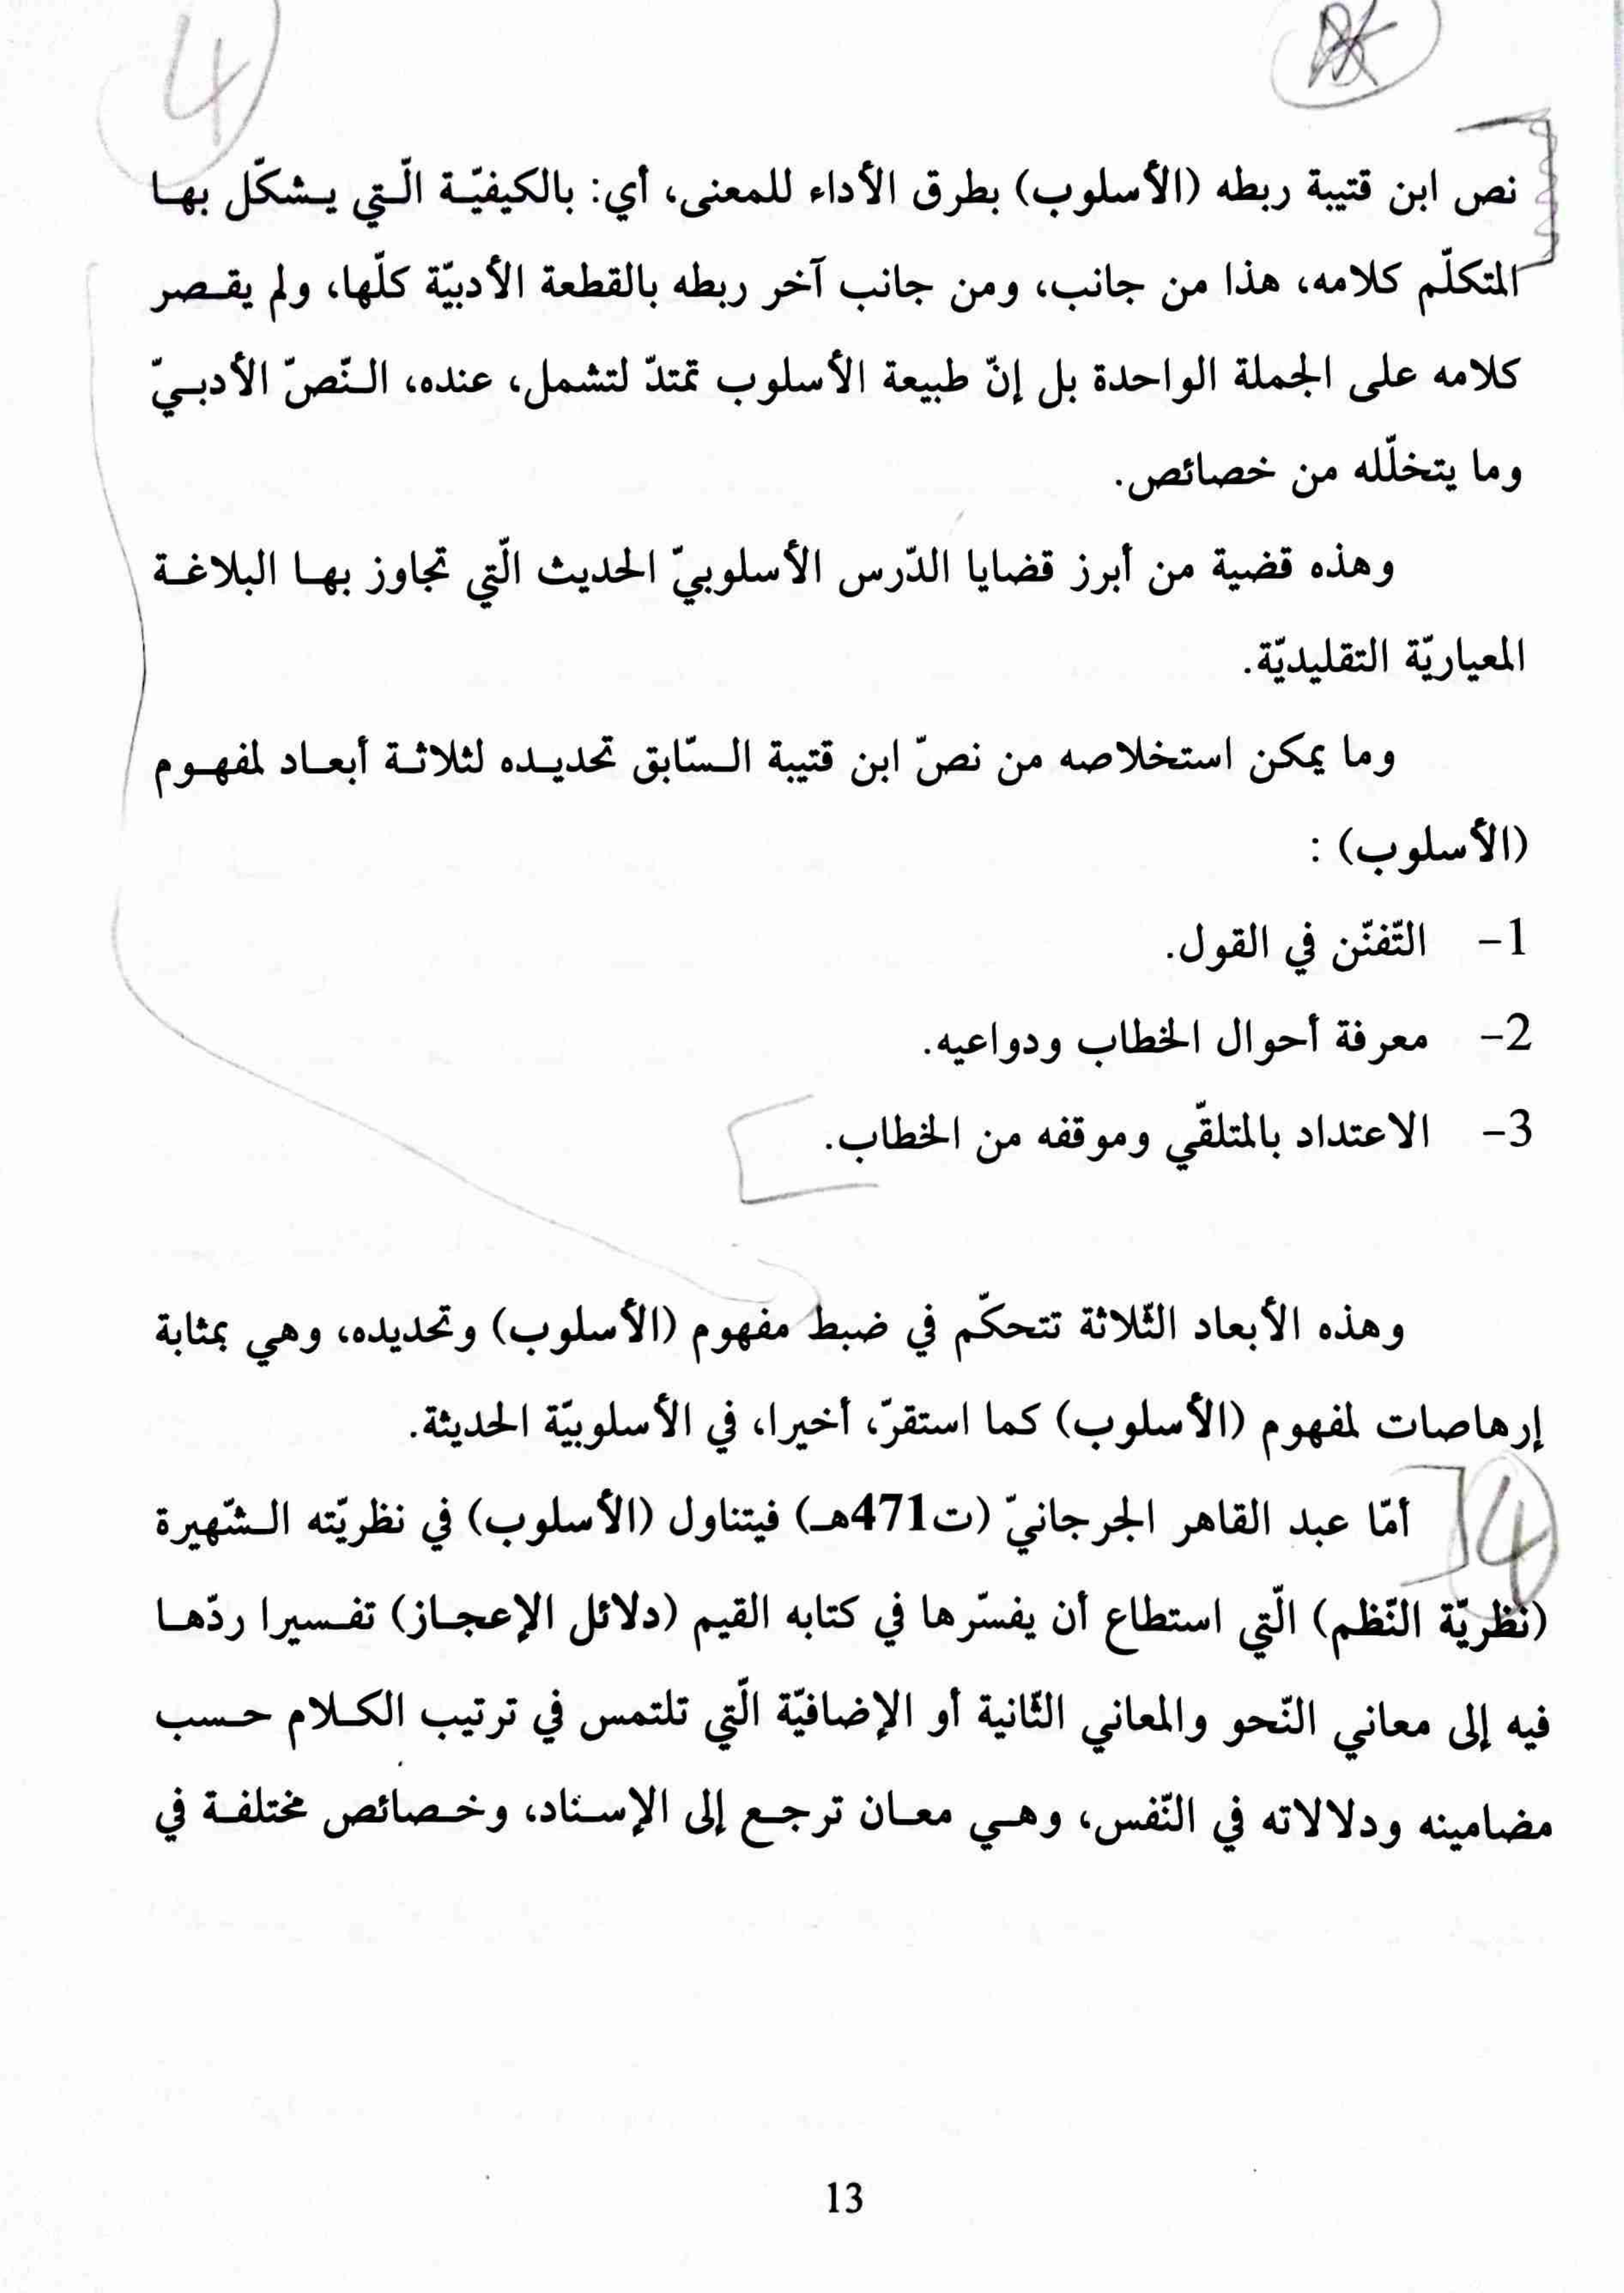 4
نص ابن قتيبة ربطه (الأسلوب) بطرق الأداء للمعنى، أي: بالكيفيّـة الّـتي يـشكّل بهـا
المتكلّم كلامه، هذا من جانب، ومن جانب آخر ربطه بالقطعة الأدبيّة كلّها، ولم يقـصر
كلامه على الجملة الواحدة بل إنّ طبيعة الأسلوب تمتدّ لتشمل، عنده، الـنّصّ الأدبـيّ
وما يتخلّله من خصائص.
وهذه قضية من أبرز قضايا الدّرس الأسلوبيّ الحديث الّتي تجاوز بهـا البلاغـة
المعياريّة التقليديّة.
وما يمكن استخلاصه من نصّ ابن قتيبة الـسّابق تحديـده لثلاثـة أبعـاد لمفهـوم
(الأسلوب) :
1- التّفنّن في القول.
2- معرفة أحوال الخطاب ودواعيه.
3- الاعتداد بالمتلقّي وموقفه من الخطاب.
وهذه الأبعاد الثّلاثة تتحكّم في ضبط مفهوم (الأسلوب) وتحديده، وهي بمثابة
إرهاصات لمفهوم (الأسلوب) كما استقرّ، أخيرا، في الأسلوبيّة الحديثة.
4
أمّا عبد القاهر الجرجانيّ (ت471هـ) فيتناول (الأسلوب) في نظريّته الـشّهيرة
(نظريّة النّظم) الّتي استطاع أن يفسّرها في كتابه القيم (دلائل الإعجـاز) تفـسيرا ردّهـا
فيه إلى معاني النّحو والمعاني الثّانية أو الإضافيّة الّتي تلتمس في ترتيب الكـلام حـسب
مضامينه ودلالاته في النّفس، وهـي معـان ترجـع إلى الإسـناد، وخـصائص مختلفـة في
13